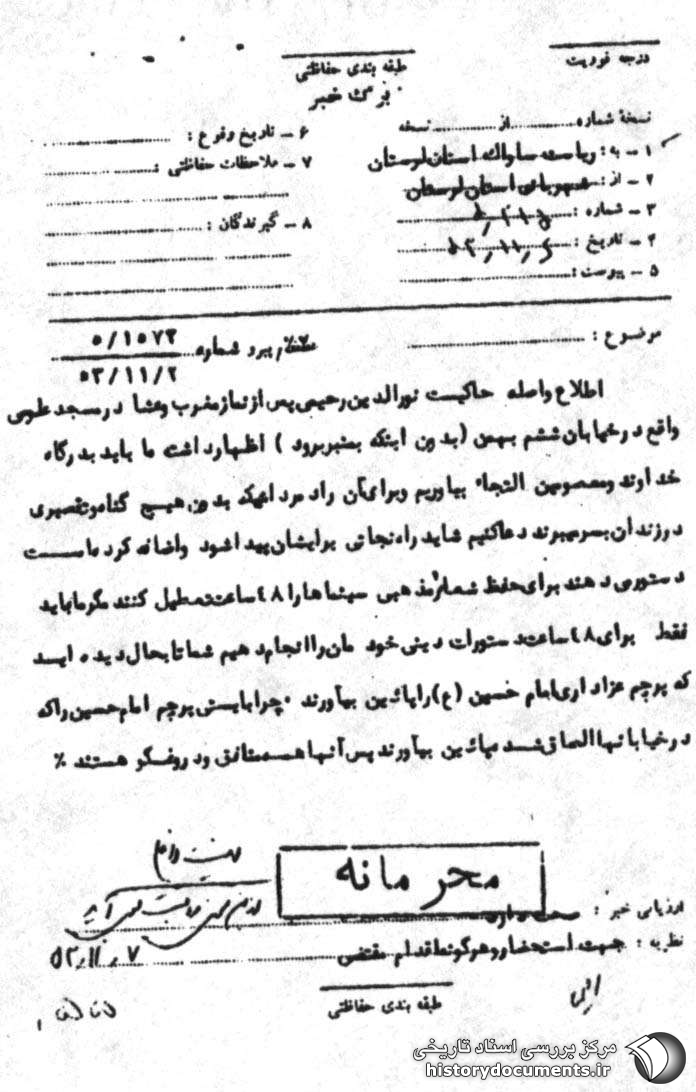 درجه فوریت
طبقه بندی حفاظتی
برگ خبر
نسخهٔ شماره ............ از ............ نسخه
۱ – به : ریاست ساواک استان لرستان
۲ – از : شهربانی استان لرستان
۳ – شماره :
۴ – تاریخ :
۵ – پیوست :
۶ – تاریخ وقوع :
۷ – ملاحظات حفاظتی :
۸ – گیرندگان :
موضوع :
پیرو شماره ۵/۱۵۷۳
۵۳/۱۱/۲
اطلاع واصله حاکیست نورالدین رحیمی پس از نماز مغرب وعشا در مسجد علومی
واقع در خیابان ششم بهمن (بدون اینکه بمنبر برود ) اظهار داشت ما باید بدرگاه
خداوند ومعصومین التجاء بیاوریم وبرای آن راد مردانیکه بدون هیچ گناه وتقصیری
درزندان بسر میبرند دعا کنیم شاید راه نجاتی برایشان پیدا شود واضافه کرد
دستوری دهند برای حفظ شعائر مذهبی سینماها را ۴۸ ساعت تعطیل کنند مگر ما باید
فقط برای ۴۸ ساعت دستورات دینی خود مان را انجام دهیم شما تا بحال دیده اید
که پرچم عزاداری امام حسین (ع) را پائین بیاورند ۰ چرا بایستی پرچم امام حسین را که
در خیابانها الصاق شده پائین بیاورند پس آنها همه منافق ودروغگو هستند ٪
محرمانه
ارزیابی خبر : صحت دارد
نظریه : جهت استحضار وهرگونه اقدام مقتضی
۵۳/۱۱/۷
طبقه بندی حفاظتی
مرکز بررسی اسناد تاریخی
historydocuments.ir